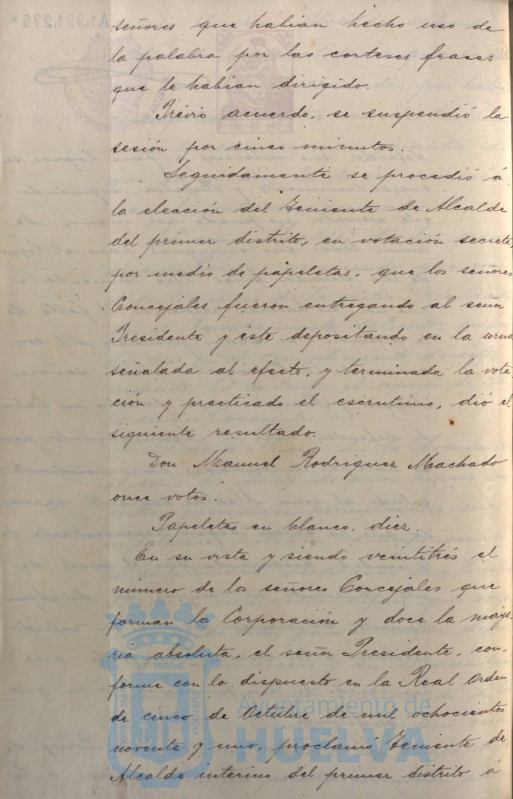 señores que habian hecho uso de
la palabra por las corteses frases
que le habian dirigido.
Prévio acuerdo, se suspendió la
sesión por cinco minutos.
Seguidamente se procedió á
la elección del Teniente de Alcalde
del primer distrito, en votación secreta
por medio de papeletas, que los señores
Concejales fueron entregando al señor
Presidente y éste depositando en la urna
señalada al efecto, y terminada la vota
ción y practicado el escrutinio, dió el
siguiente resultado.
Don Manuel Rodriguez Machado
once votos.
Papeletas en blanco, diez.
En su vista y siendo veintitrés el
número de los señores Concejales que
forman la Corporación y doce la mayo-
ria absoluta, el señor Presidente, con-
forme con lo dispuesto en la Real Orden
de cinco de Octubre de mil ochocientos
noventa y uno, proclamo Teniente de
Alcalde interino del primer distrito á
Ayuntamiento de
HUELVA